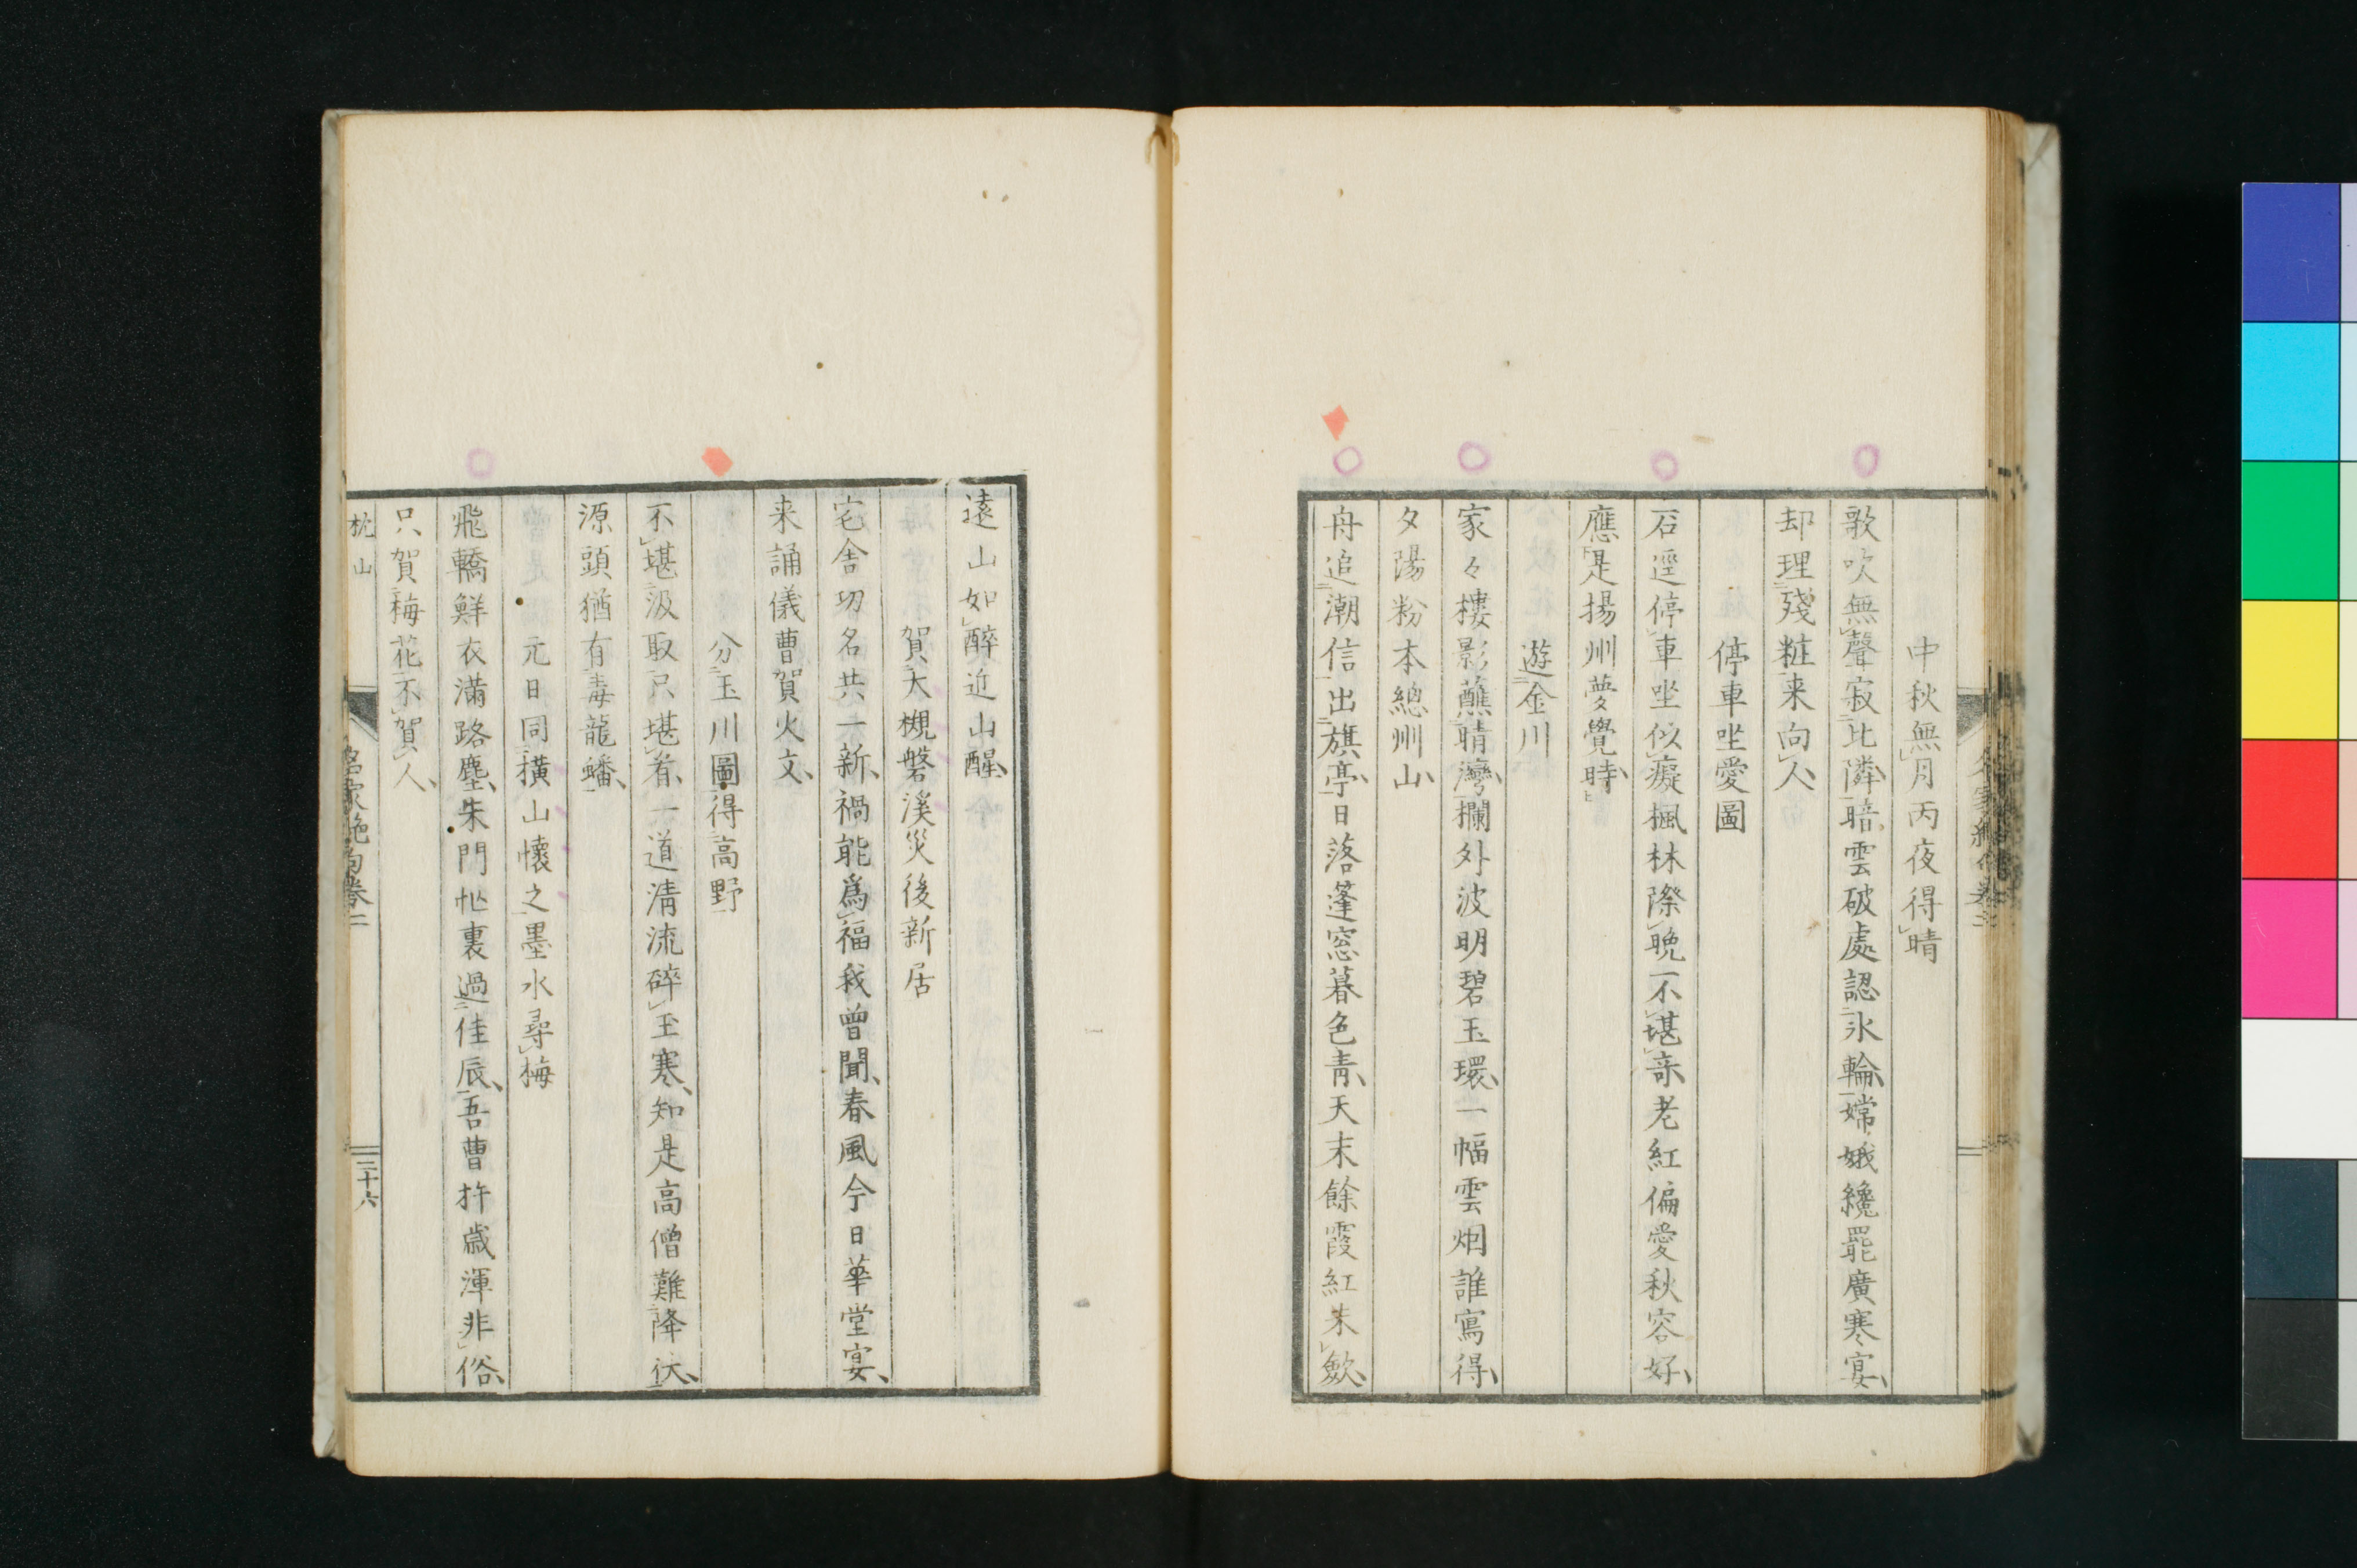 中秋無月丙夜得晴
歌吹無聲寂比隣、暗雲破處認氷輪、嫦娥纔罷廣寒宴、
却理殘粧来向人、
停車坐愛圖
石逕停車坐似癡楓林際晩不堪竒、老紅偏愛秋容好、
應是揚州夢覺時、
遊金川
家々樓影蘸晴灣、欄外波明碧玉環、一幅雲烟誰寫得、
夕陽粉本總州山、
舟追潮信出旗亭、日落蓬窓暮色青、天末餘霞紅未歛、
遠山如醉近山醒、
賀大槻磐溪災後新居
宅舎功名共一新、禍能爲福我曾聞、春風今日華堂宴、
来誦儀曹賀火文、
分玉川圖得高野
不堪汲取只堪看、一道清流碎玉寒、知是高僧難降伏、
源頭猶有毒龍蟠、
元日同横山懷之墨水尋梅
飛轎鮮衣滿路塵、朱門忙裏過佳辰、吾曹拜歳渾非俗、
只賀梅花不賀人、
枕山
名家絶句卷二
三十六